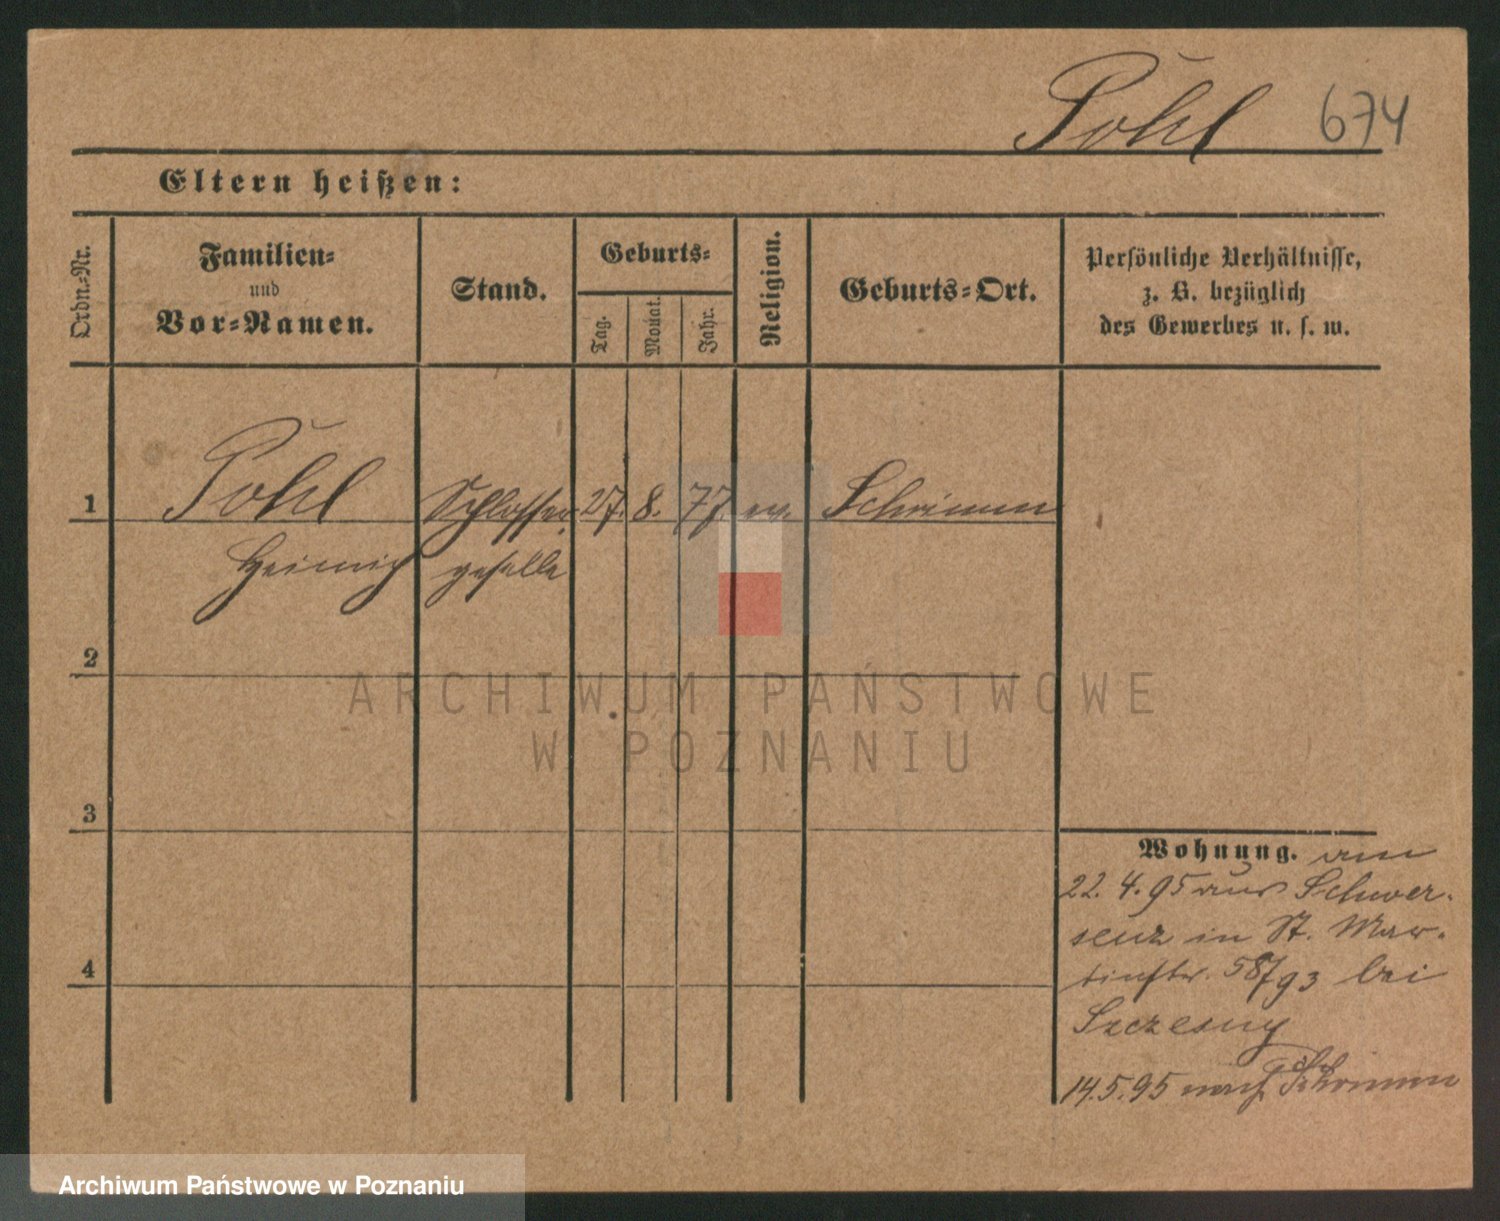 Pohl 674
Eltern heißen:
Ordn.-Nr.
Familien-
und
Vor-Namen.
Stand.
Geburts-
Tag.
Monat.
Jahr.
Religion.
Geburts-Ort.
Persönliche Verhältnisse,
z. B. bezüglich
des Gewerbes u. s. w.
1 Pohl Schlosser 27. 8. 77 ev. Schrimm
Heinrich geselle
2
3
4
Wohnung. am
22. 4. 95 aus Schwer-
senz in St. Mar-
tinstr. 58/93 bei
Szczesny
14. 5. 95 nach Schrimm
ARCHIWUM PAŃSTWOWE
W POZNANIU
Archiwum Państwowe w Poznaniu